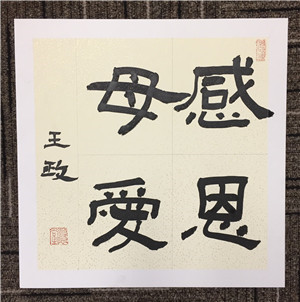 感恩
母愛
王政